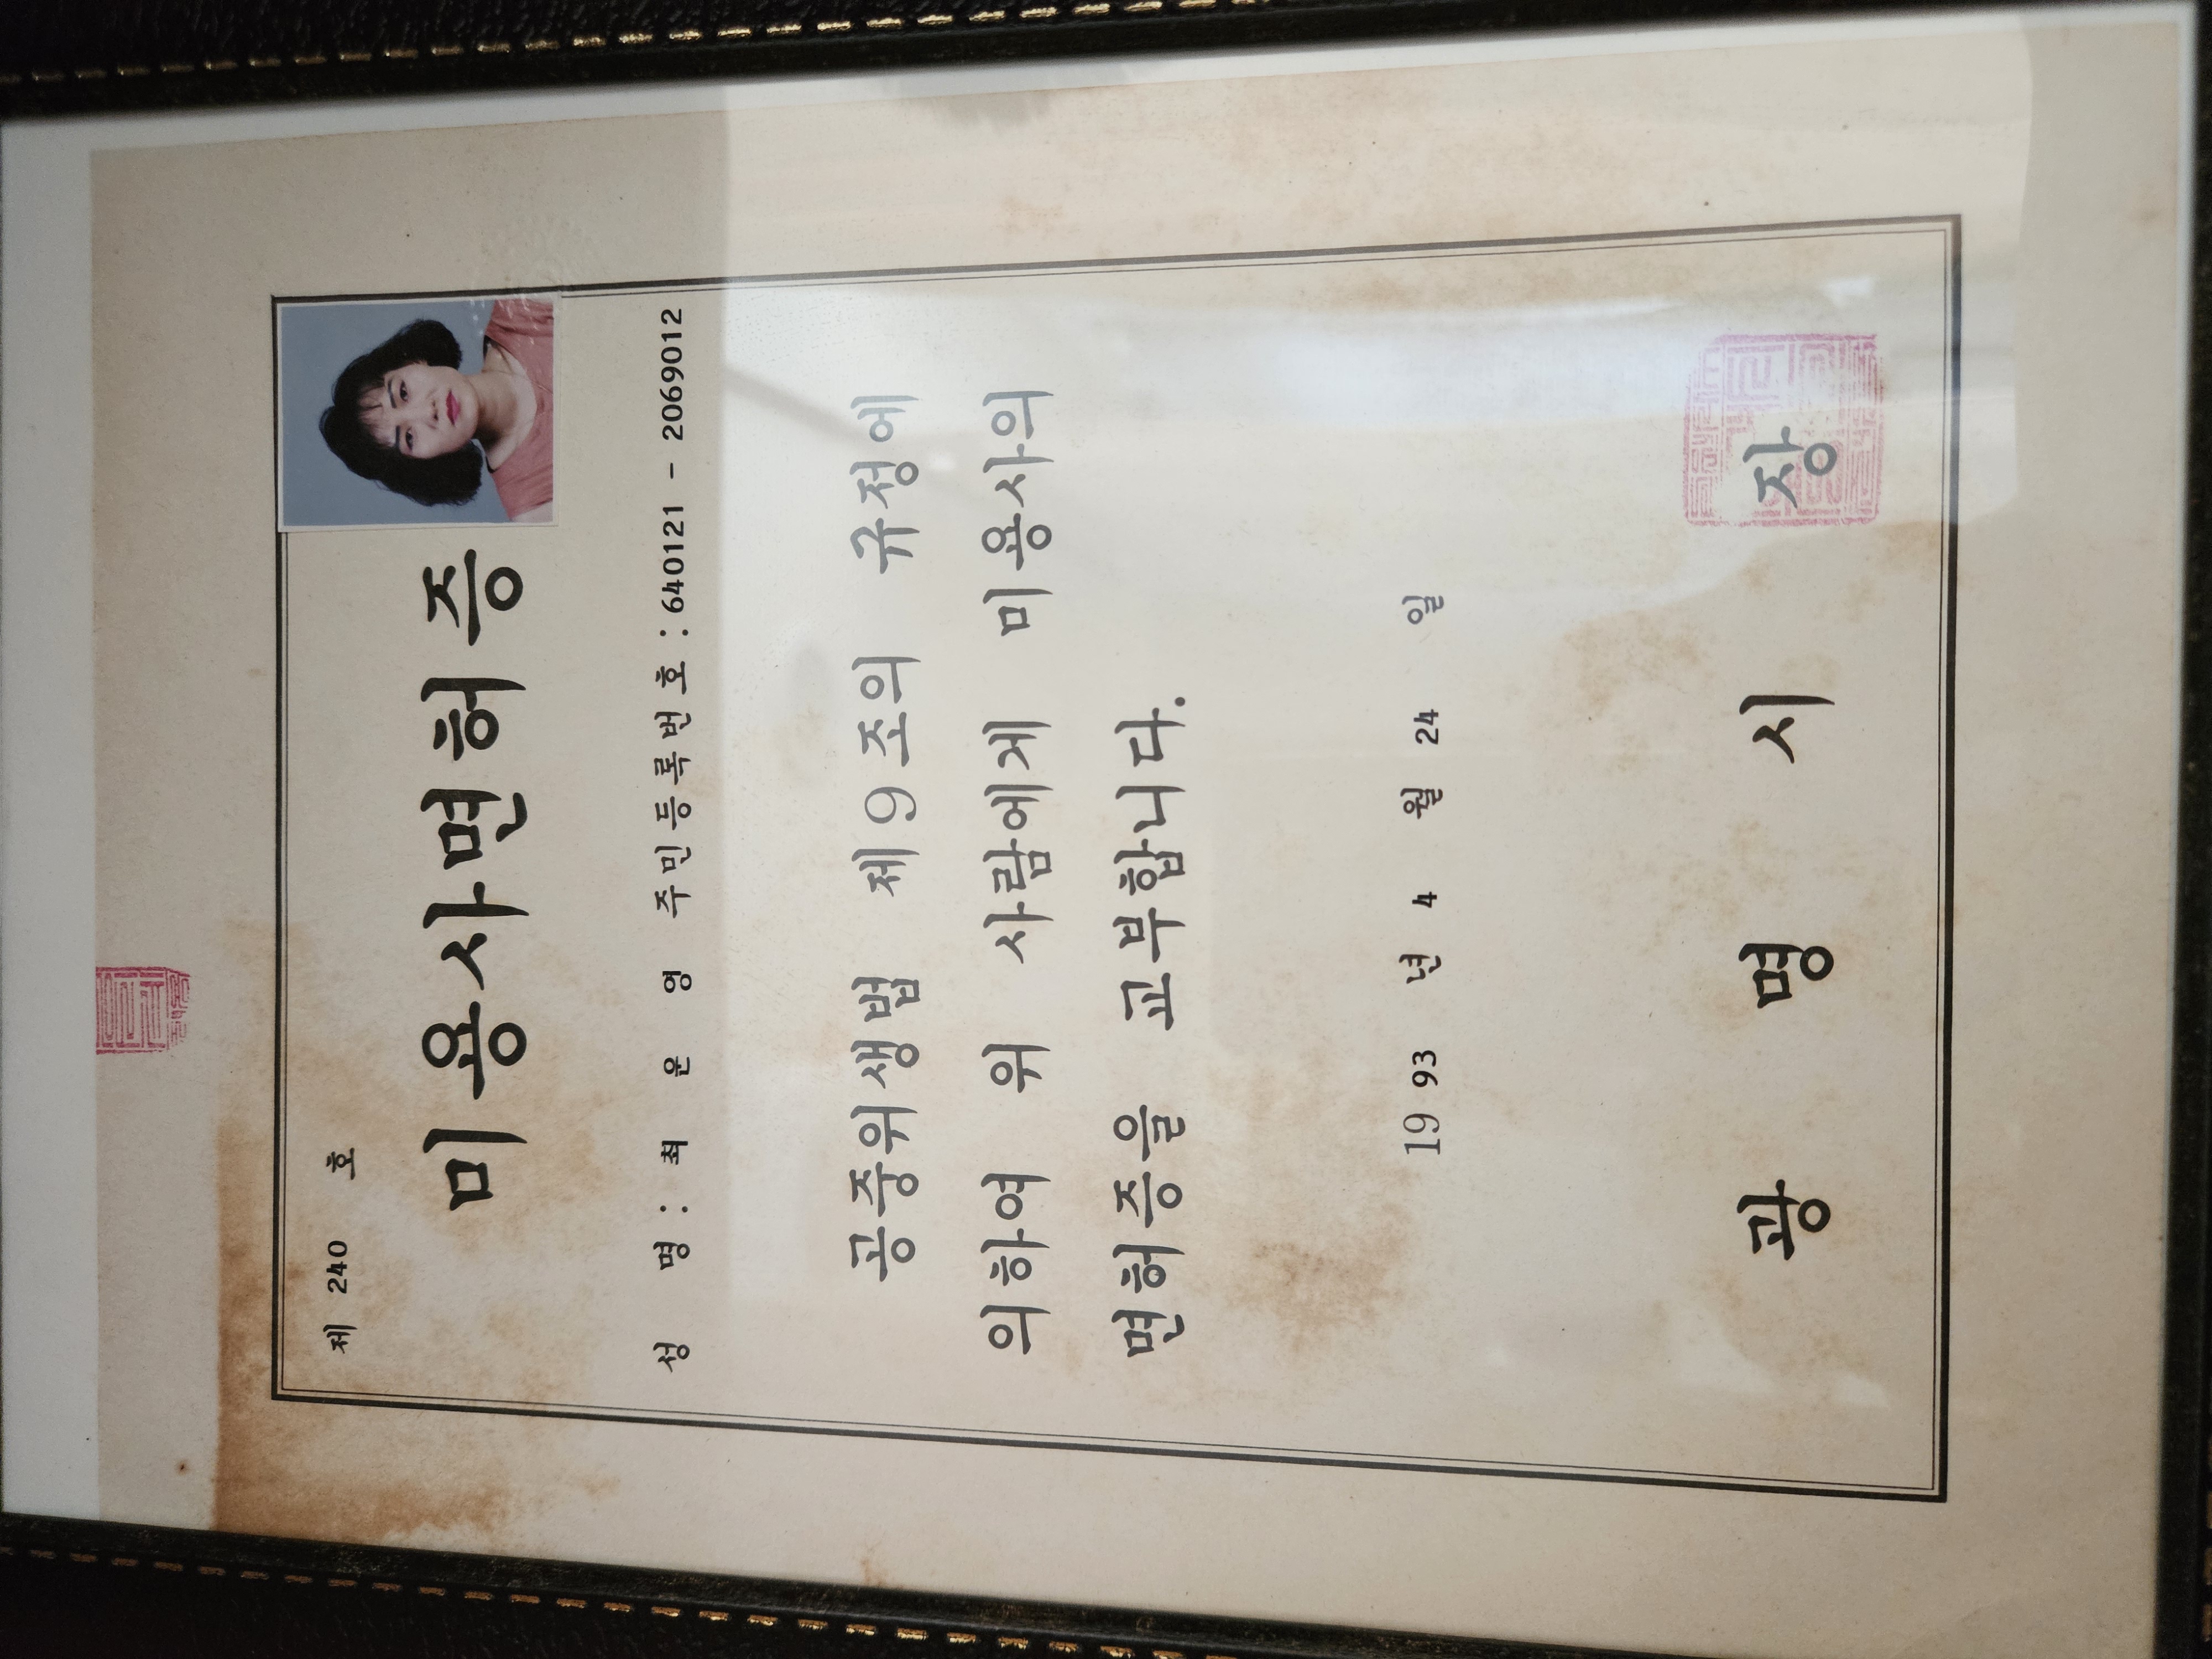 제 240 호
미용사면허증
성 명 : 최 윤 영 주민등록번호 : 640121 - 2069012
공중위생법 제9조의 규정에
의하여 위 사람에게 미용사의
면허증을 교부합니다.
19 93 년 4 월 24 일
광 명 시 장